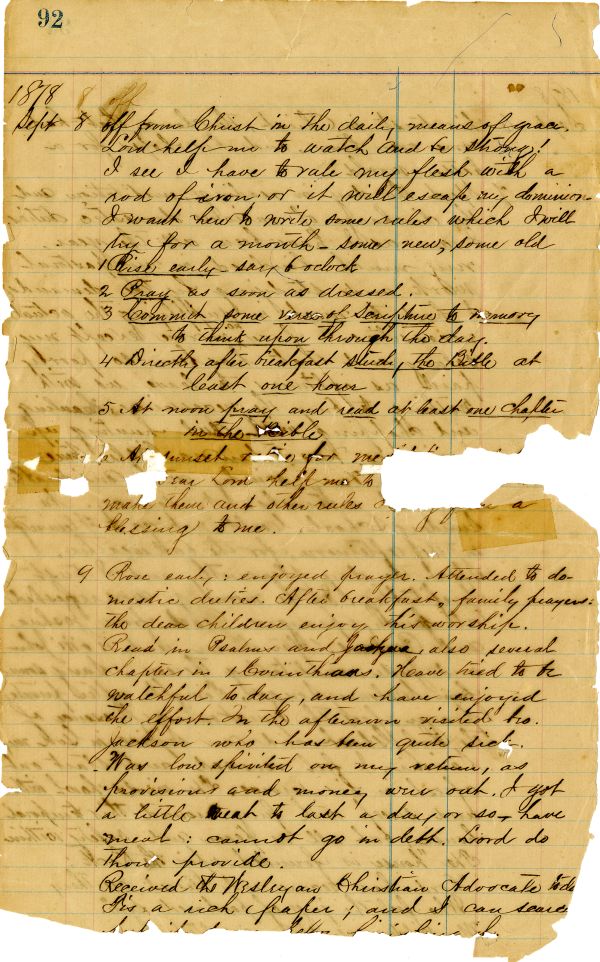 92
1878 8 off
Sept 8 off from Christ in the daily means of grace.
Lord help me to watch and be strong!
I see I have to rule my flesh with a
rod of iron or it will escape my dominion.
I want here to write some rules which I will
try for a month - some new, some old
1 Rise early - say 6 oclock
2 Pray as soon as dressed.
3 Commit some verse of Scripture to memory
to think upon through the day.
4 Directly after breakfast study the Bible at
least one hour
5 At noon pray and read at least one chapter
in the Bible
At sunset for
Lord help me to
make them and other rules a
blessing to me.
9 Rose early: enjoyed prayer. Attended to do-
mestic duties. After breakfast, family prayers:
the dear children enjoy this worship.
Read in Psalms and Joshua, also several
chapters in 1 Corinthians. Have tried to be
watchful to day, and have enjoyed
the effort. In the afternoon visited bro.
Jackson who has been quite sick.
Was low spirited on my return, as
provisions and money were out. I got
a little meat to last a day or so - have
meal: cannot go in debt. Lord do
thou provide.
Received the Wesleyan Christian Advocate
Tis a rich paper; and I can scarce